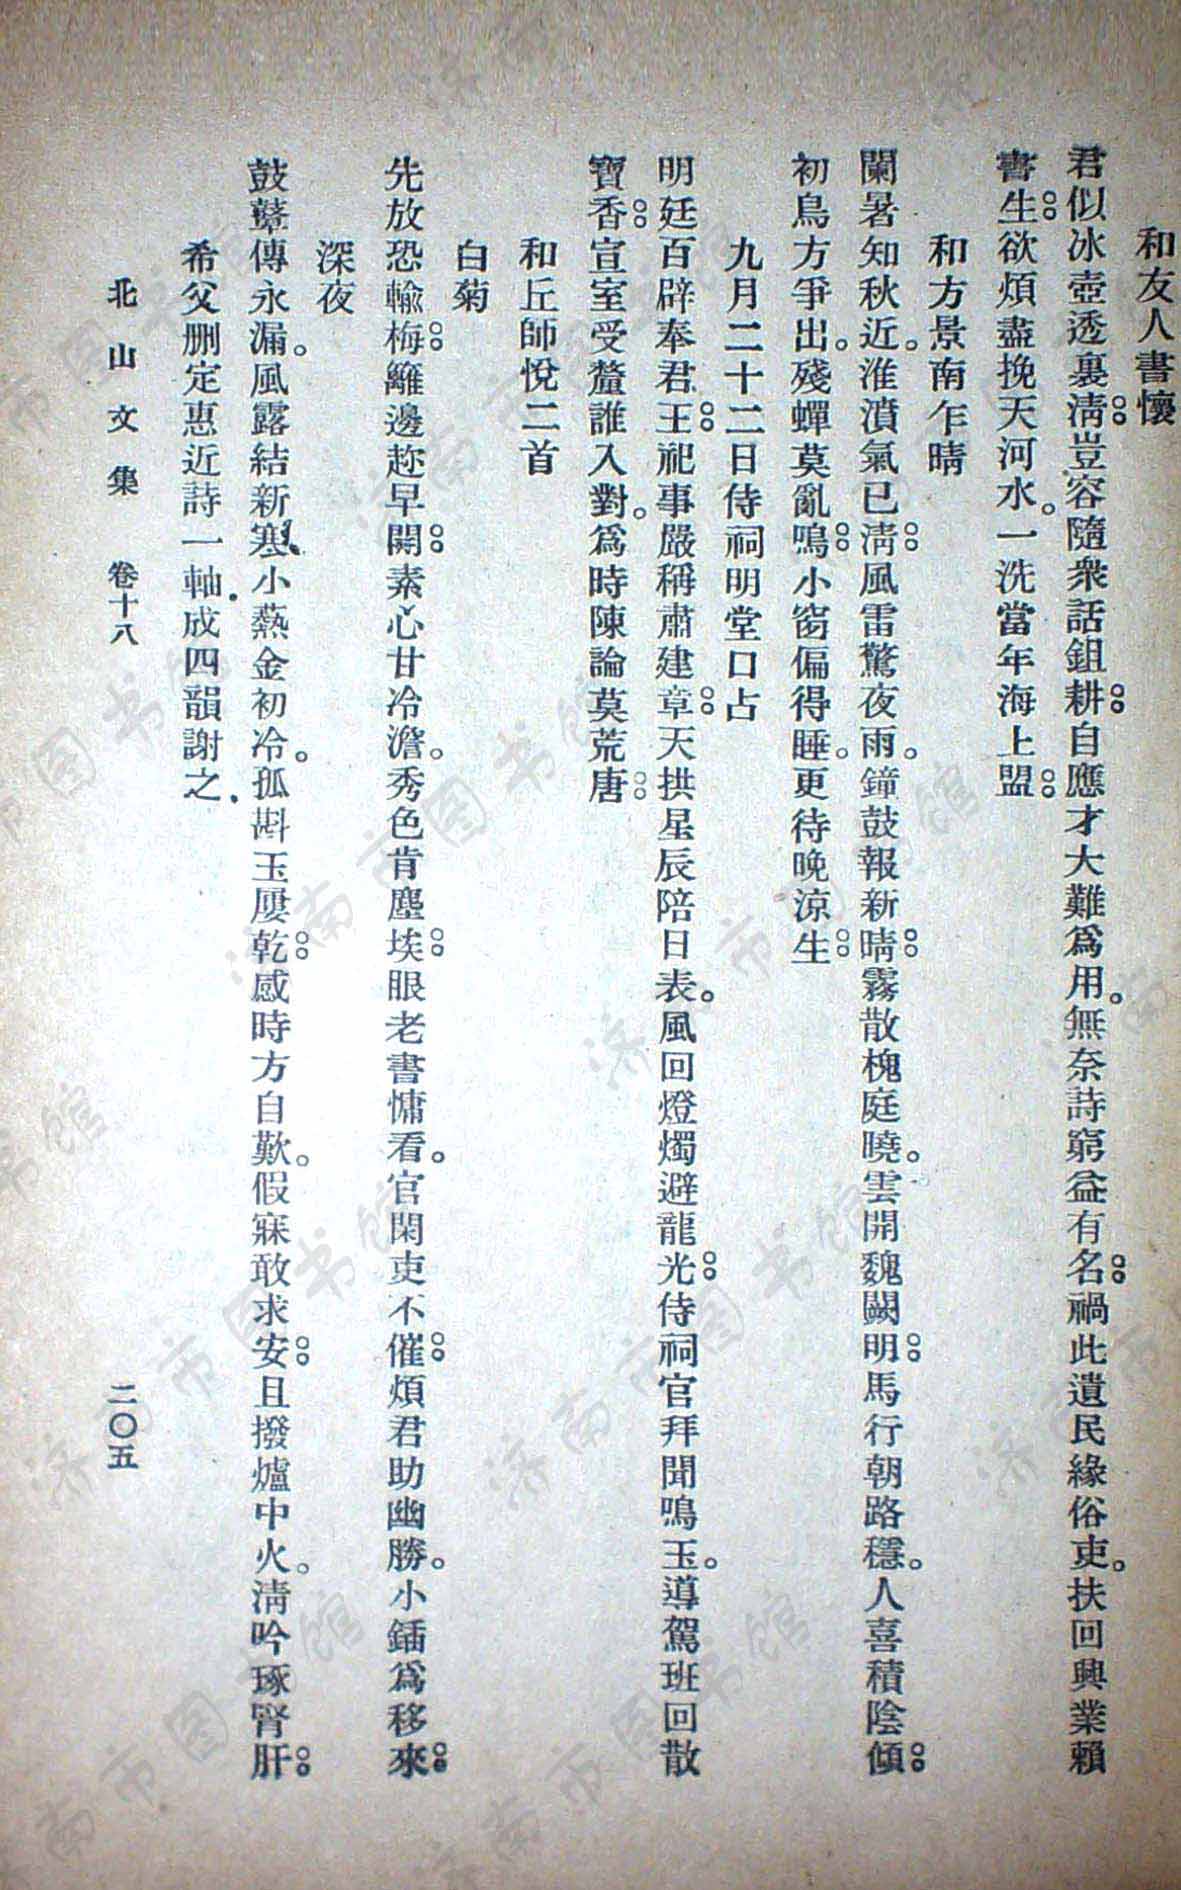 和友人書懷
君似冰壺透裏淸豈容隨衆話鉏耕自應才大難爲用。無奈詩窮益有名禍此遺民緣俗吏。扶回興業賴
書生欲煩盡挽天河水。一洗當年海上盟
和方景南乍晴
闌暑知秋近。淮濆氣已淸風雷驚夜雨。鐘鼓報新晴霧散槐庭曉。雲開魏闕明馬行朝路穩。人喜積陰傾
初鳥方爭出。殘蟬莫亂鳴小窗偏得睡。更待晚涼生
九月二十二日侍祠明堂口占
明廷百辟奉君王祀事嚴稱肅建章天拱星辰陪日表。風回燈燭避龍光侍祠官拜聞鳴玉。導駕班回散
寶香宣室受釐誰入對。爲時陳論莫荒唐
和丘師悅二首
白菊
先放恐輸梅籬邊趁早開素心甘冷澹。秀色肯塵埃眼老書慵看。官閑吏不催煩君助幽勝。小鍤爲移來
深夜
鼓鼙傳永漏。風露結新寒小爇金初冷。孤斟玉屢乾感時方自歎。假寐敢求安且撥爐中火。淸吟琢腎肝
希父删定惠近詩一軸。成四韻謝之。
北山文集 卷十八 二〇五
济南市图书馆